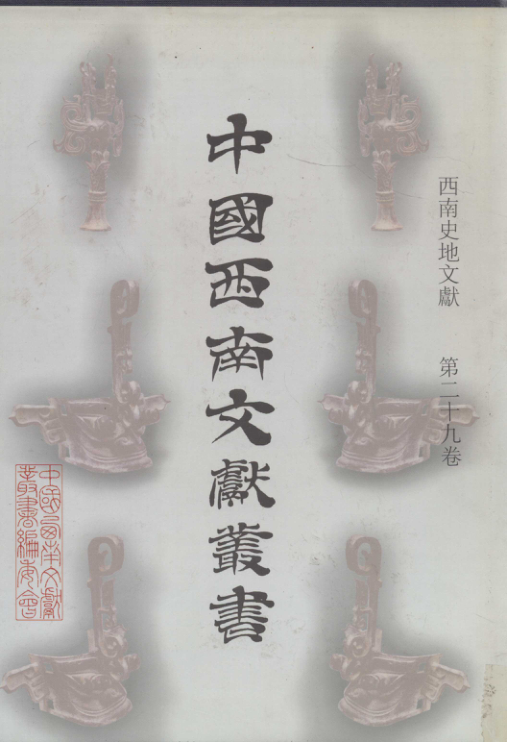 西南史地文獻 第二十九卷
中國西南文獻叢書
中國西南文獻
叢書編委會